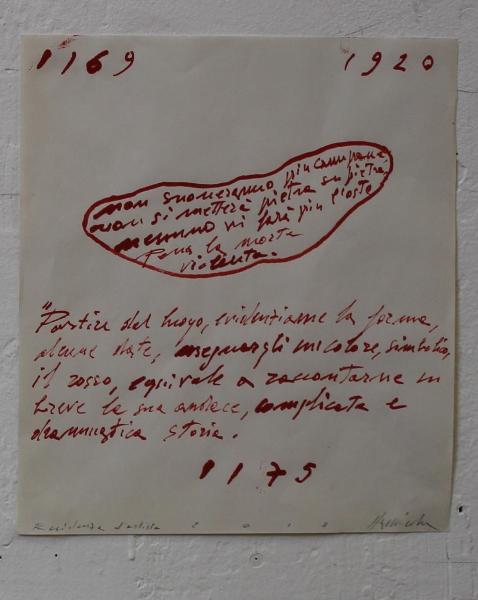 1169 1920
non suoneranno più campane,
non si metterà pietra su pietra,
nessuno vi farà più posto
Pena la morte
violenta.
"Partire dal luogo, evidenziarne la forma,
alcune date, assegnargli un colore, simbolico,
il rosso, equivale a raccontarne in
breve la sua audace, complicata e
drammatica storia.
1175
Residenza d'artista 2018